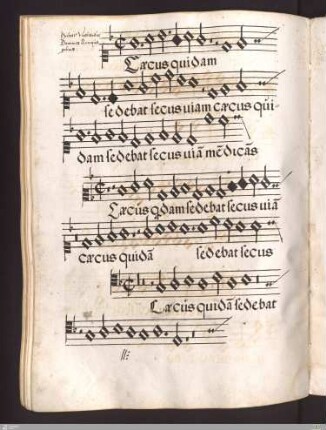 Cæcus quidam
sedebat secus uiam cæcus qui-
dam sedebat secus uiā mēdicās
Cæcus qdam sedebat secus uiā
cæcus quidā sedebat secus
Cæcus quidā sedebat